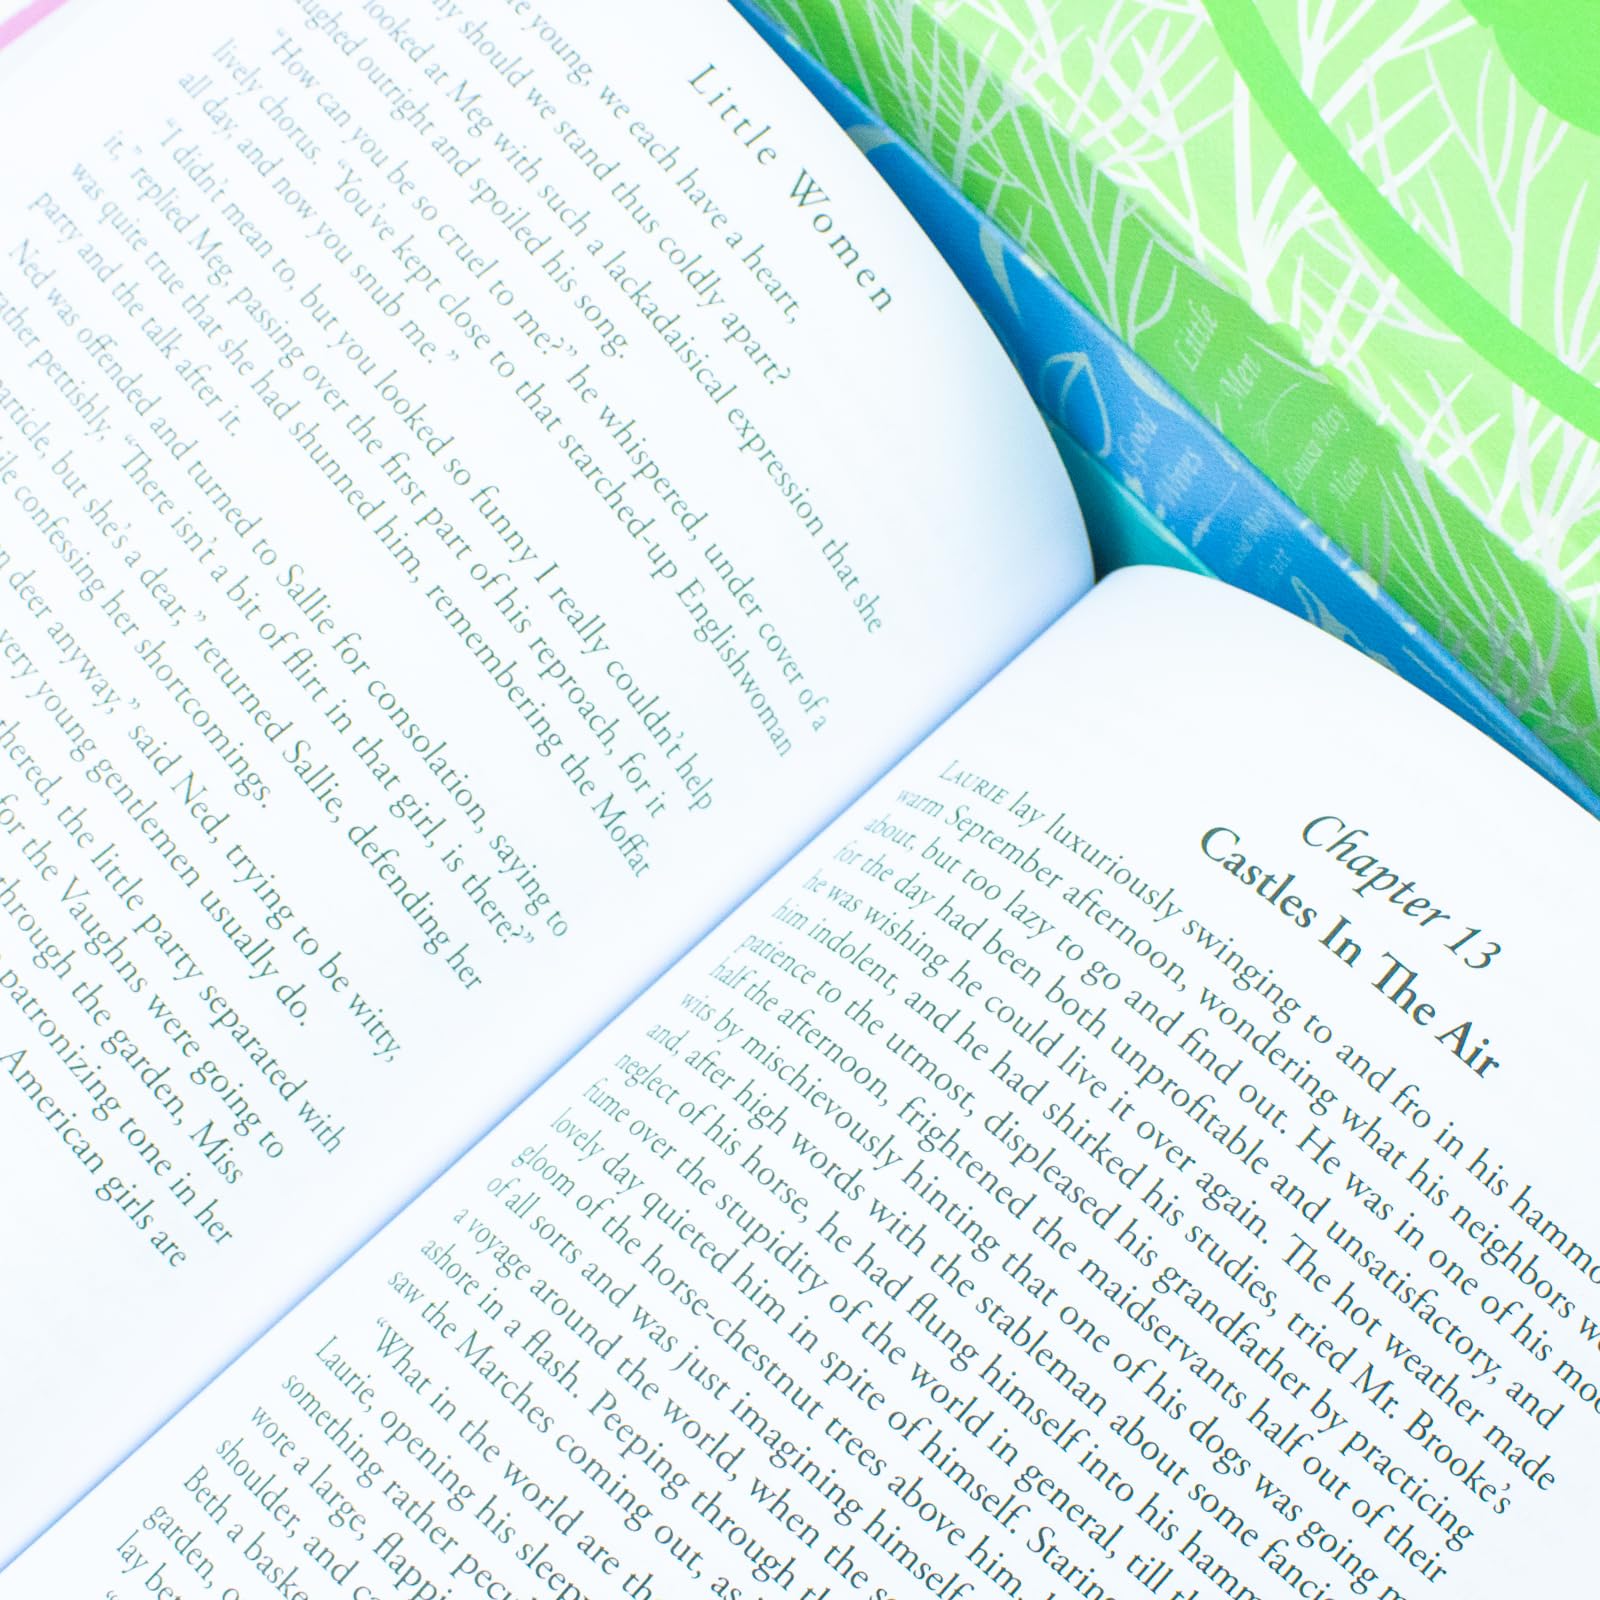 Little Women
re young, we each have a heart,
ny should we stand thus coldly apart?
looked at Meg with such a lackadaisical expression that she
ughed outright and spoiled his song.
"How can you be so cruel to me?" he whispered, under cover of a
lively chorus. "You've kept close to that starched-up Englishwoman
all day, and now you snub me."
"I didn't mean to, but you looked so funny I really couldn't help
it," replied Meg, passing over the first part of his reproach, for it
was quite true that she had shunned him, remembering the Moffat
party and the talk after it.
Ned was offended and turned to Sallie for consolation, saying to
ather pettishly, "There isn't a bit of flirt in that girl, is there?"
article, but she's a dear," returned Sallie, defending her
ile confessing her shortcomings.
n deer anyway," said Ned, trying to be witty,
very young gentlemen usually do.
thered, the little party separated with
for the Vaughns were going to
through the garden, Miss
patronizing tone in her
American girls are
Little Men
Louisa May Alcott
Good Wives
Chapter 13
Castles In The Air
LAURIE lay luxuriously swinging to and fro in his hammo
warm September afternoon, wondering what his neighbors we
about, but too lazy to go and find out. He was in one of his moo
for the day had been both unprofitable and unsatisfactory, and
he was wishing he could live it over again. The hot weather made
him indolent, and he had shirked his studies, tried Mr. Brooke's
patience to the utmost, displeased his grandfather by practicing
half the afternoon, frightened the maidservants half out of their
wits by mischievously hinting that one of his dogs was going m
and, after high words with the stableman about some fancie
neglect of his horse, he had flung himself into his hamm
fume over the stupidity of the world in general, till th
lovely day quieted him in spite of himself. Staring
gloom of the horse-chestnut trees above him,
of all sorts and was just imagining himself
a voyage around the world, when the so
ashore in a flash. Peeping through th
saw the Marches coming out, as i
"What in the world are th
Laurie, opening his sleepy
something rather pecu
wore a large, flappi
shoulder, and ca
Beth a baske
garden, o
lay bet